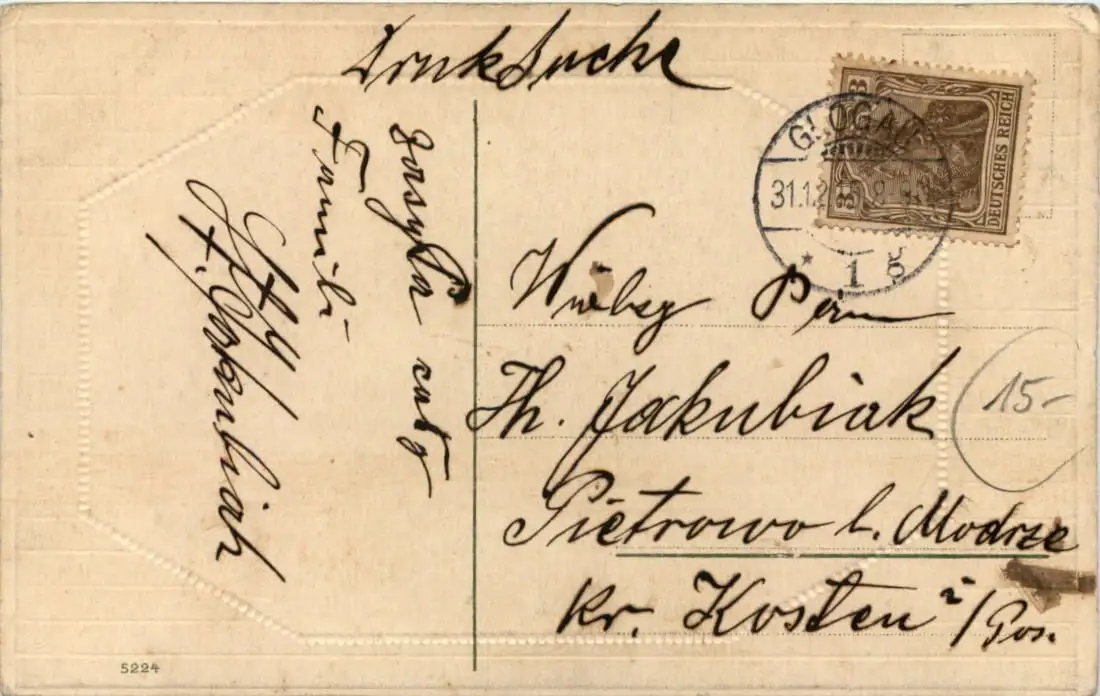 Druksache
zasyła cały
Famili
Jakubiak
GLOGAU
31.12
* 1 g
3
3
DEUTSCHES REICH
Wielbny Pan
Th. Jakubiak
Pietrowo b. Modrze
Kr. Kosten i/Pos.
15-
5224